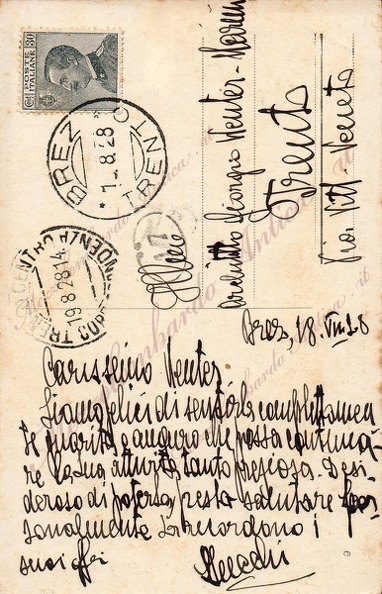 POSTE ITALIANE
Cent 30
BREZ
TRENTO
18.8.28
CENTRO CORRISPONDENZA
TRENTO
19.8.28-14
Architetto Giorgio Wenter-Marini
Trento
Via Vitt. Veneto
Brez, 18. VIII 28
Carissimo Wenter,
Siamo felici di sentirla completamen
te guarito e auguro che possa continua
re la sua attività tanto preziosa. Desi
deroso di poterla presto salutare per-
sonalmente la ricordano i
suoi aff.
Alessandro Lombardo Antica .it